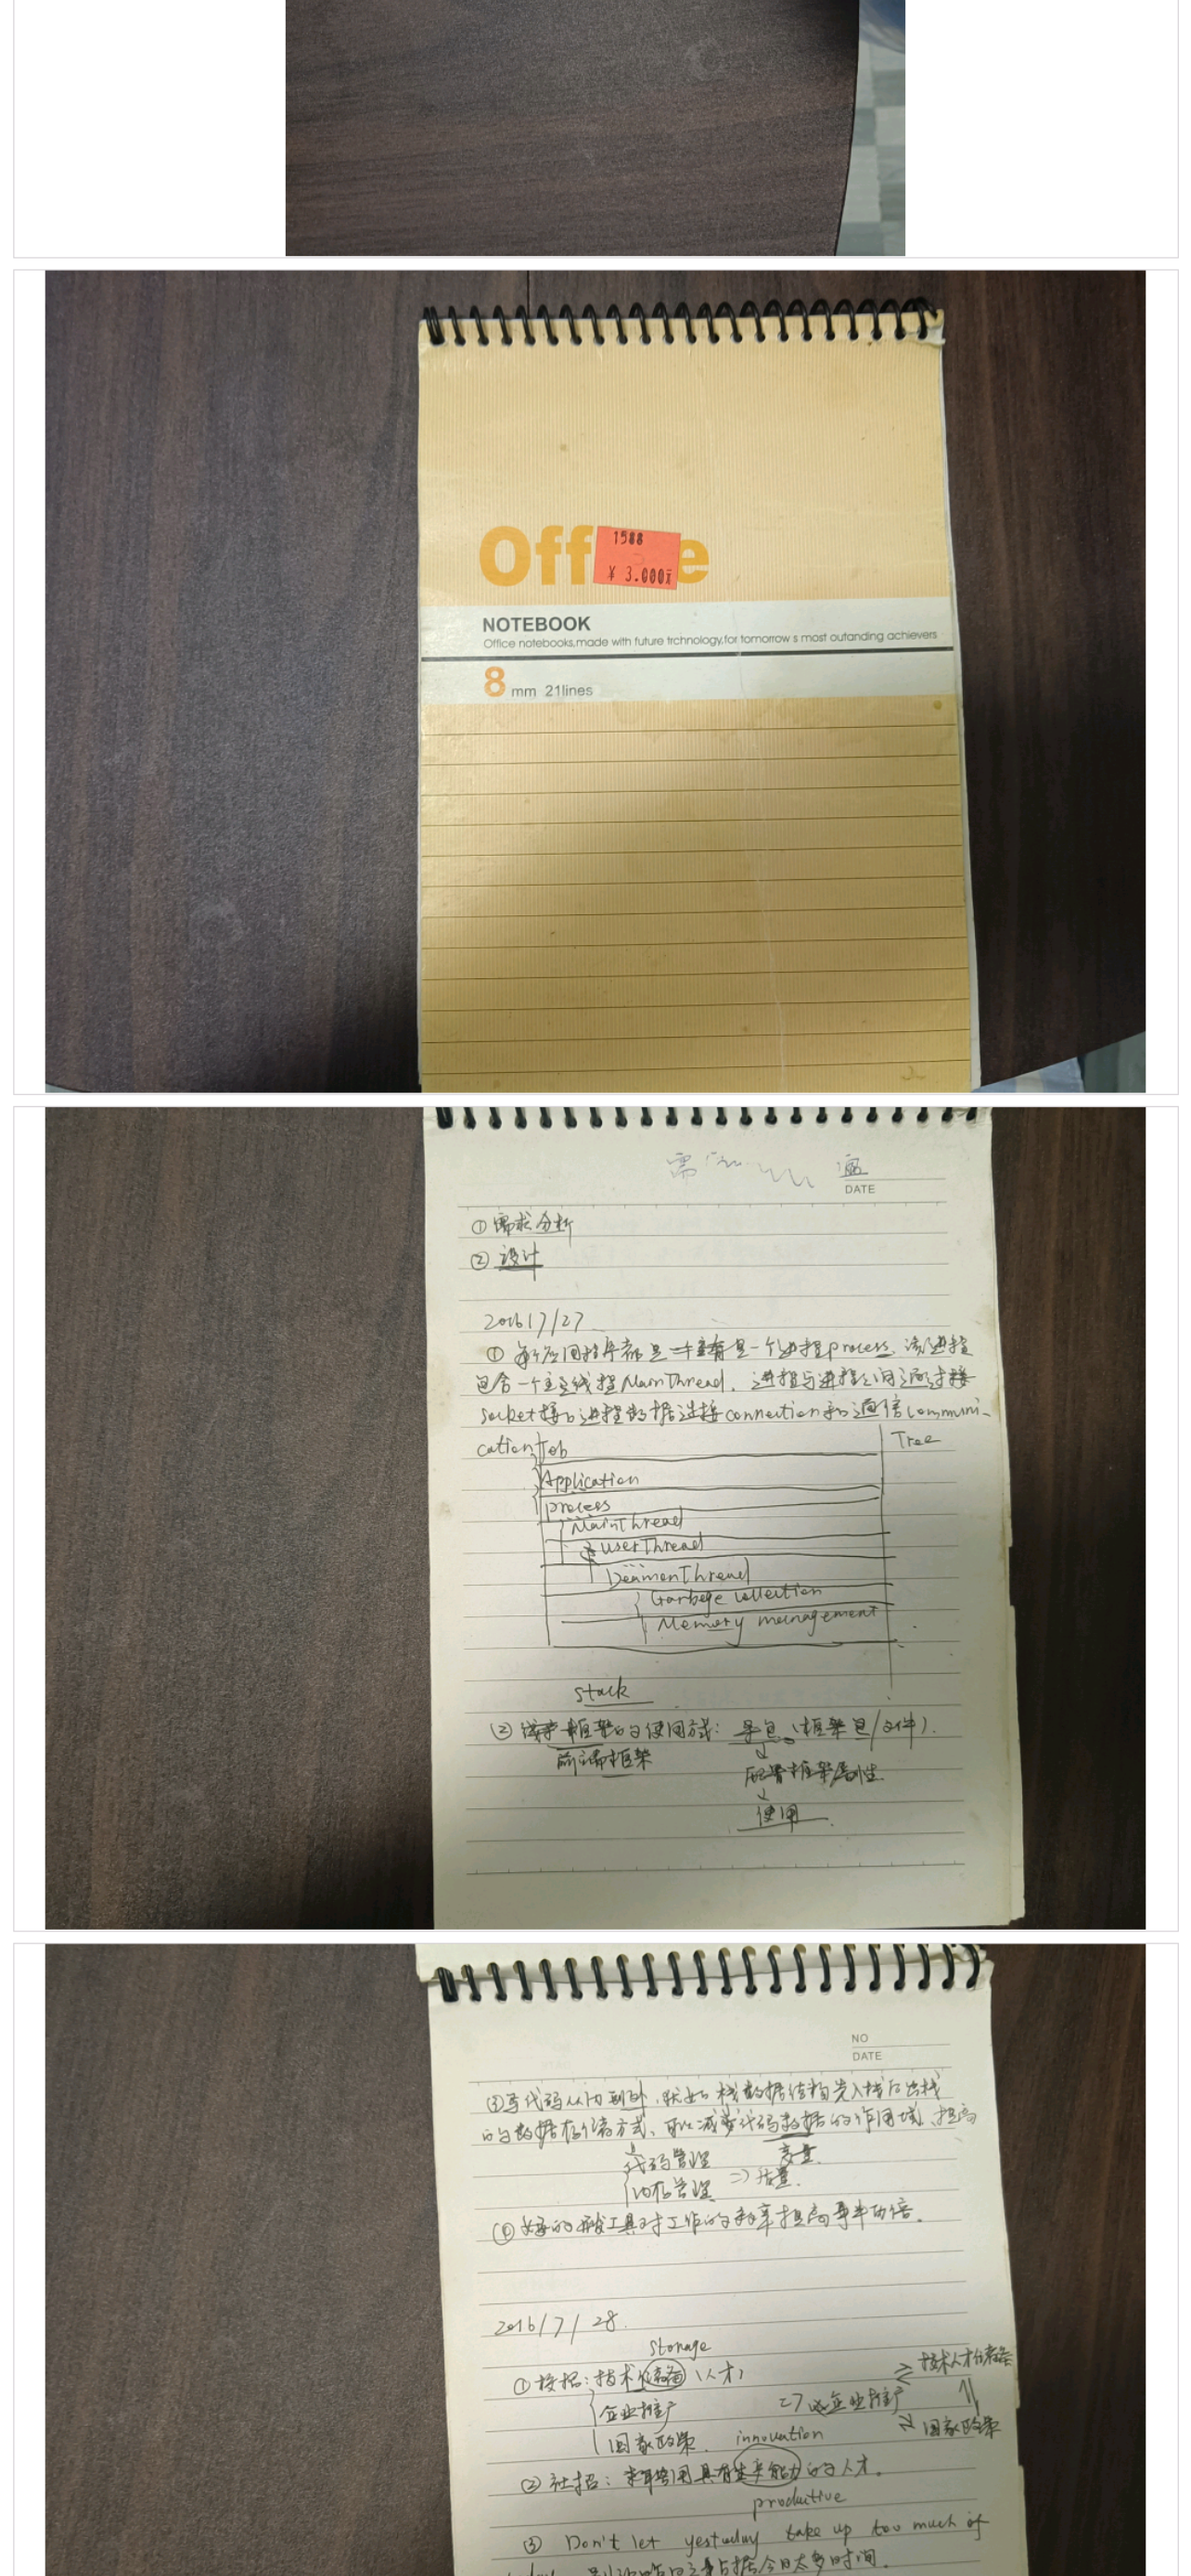 Off e
1588
¥ 3.000元
NOTEBOOK
Office notebooks,made with future trchnology,for tomorrow s most outanding achievers
8 mm 21lines
需
DATE
① 需求分析
② 设计
2016/7/27
① 每个应用程序都是 是一个进程process, 该进程
包含一个主线程MainThread, 进程与进程之间通过
socket接口进程数据连接connection和通信communi-
cation
Job
Tree
Application
process
MainThread
userThread
DeamonThread
Garbage collection
Memory management
stack
② 框架的使用方式: 导包 (框架包/文件).
前端框架
配置框架属性
使用
NO
DATE
③ 写代码从内到外, 就如栈数据结构先入栈后出栈
的数据存储方式, 可以减少代码数据的作用域, 提高
代码管理 变量.
内存管理 => 质量.
④ 好的开发工具对工作的效率提高事半功倍.
2016/7/28.
storage
① 校招: 技术储备 (人才)
企业推广
国家政策.
=> 企业推广
技术人才储备
国家政策
innovation
② 社招: 具有生产能力的人才.
produitive
③ Don't let yestuday take up too much of
别让昨日之事占据今日太多时间.